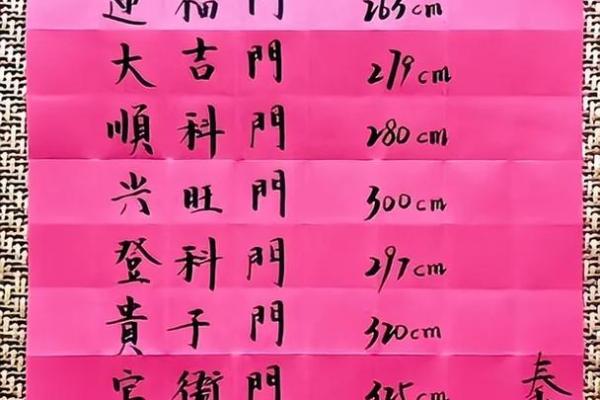 迎福門 265cm
大吉門 279cm
順科門 280cm
兴旺門 300cm
登科門 297cm
貴子門 320cm
官衛門 325cm
秦